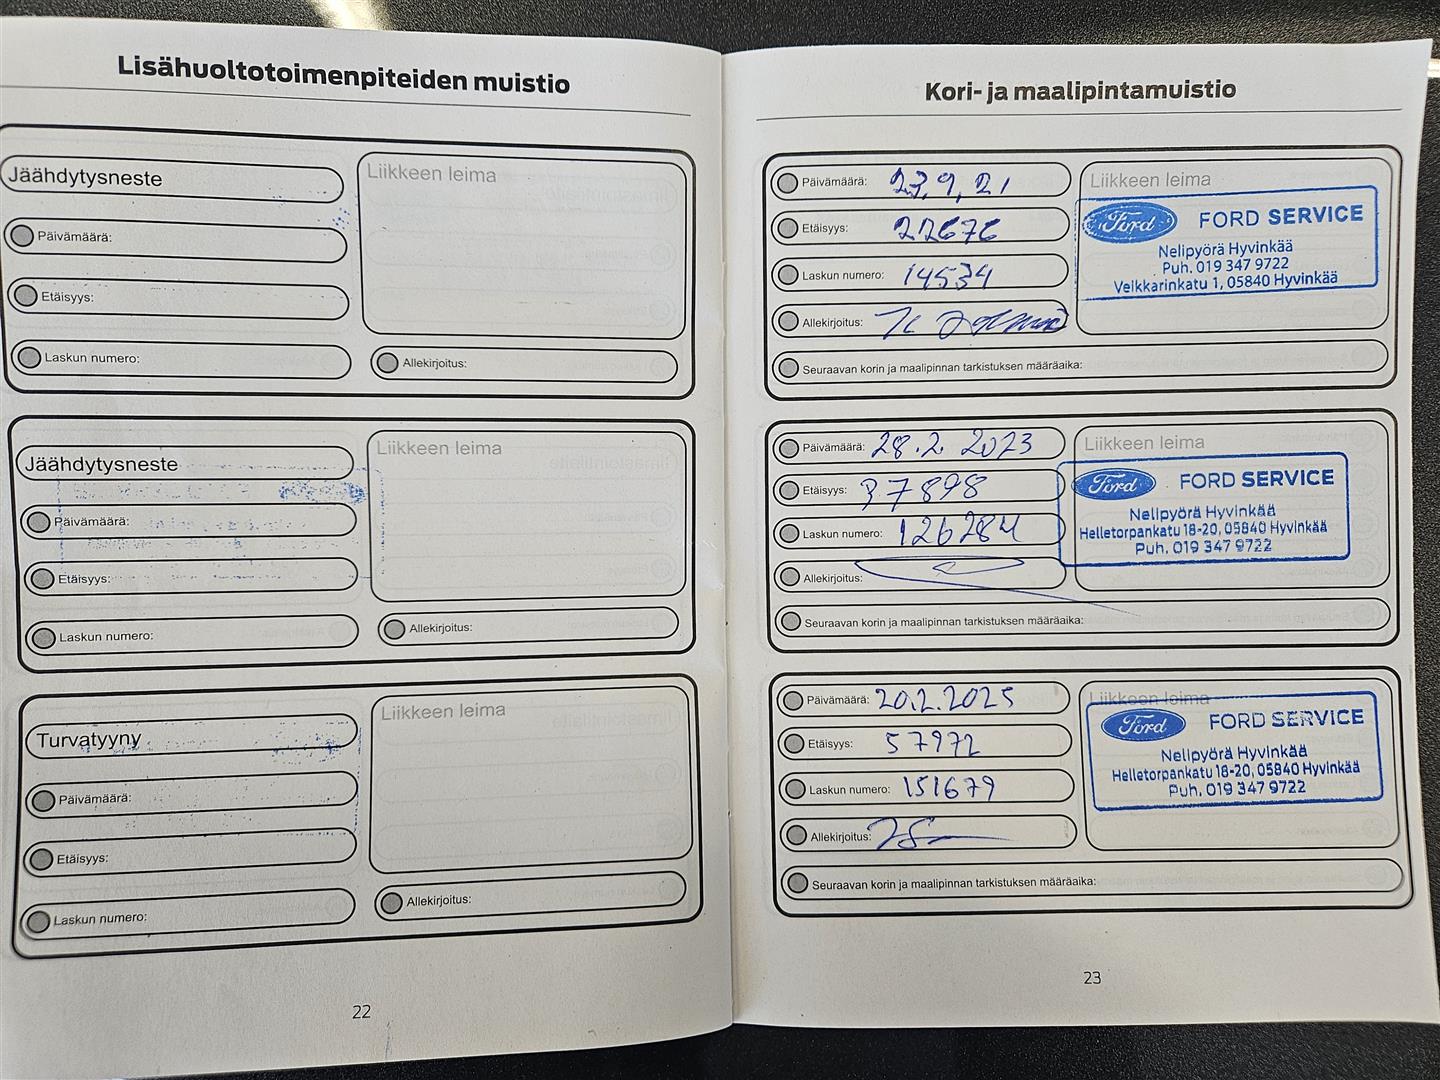 Lisähuoltotoimenpiteiden muistio
Jäähdytysneste
Liikkeen leima
Päivämäärä:
Etäisyys:
Laskun numero:
Allekirjoitus:
Jäähdytysneste
Liikkeen leima
Päivämäärä:
Etäisyys:
Laskun numero:
Allekirjoitus:
Turvatyyny
Liikkeen leima
Päivämäärä:
Etäisyys:
Laskun numero:
Allekirjoitus:
22
Kori- ja maalipintamuistio
Päivämäärä: 23,9,21
Etäisyys: 22676
Laskun numero: 14534
Allekirjoitus:
Liikkeen leima
Ford FORD SERVICE
Nelipyörä Hyvinkää
Puh. 019 347 9722
Veikkarinkatu 1, 05840 Hyvinkää
Seuraavan korin ja maalipinnan tarkistuksen määräaika:
Päivämäärä: 28.2.2023
Etäisyys: 37898
Laskun numero: 126284
Allekirjoitus:
Liikkeen leima
Ford FORD SERVICE
Nelipyörä Hyvinkää
Helletorpankatu 18-20, 05840 Hyvinkää
Puh. 019 347 9722
Seuraavan korin ja maalipinnan tarkistuksen määräaika:
Päivämäärä: 20.2.2025
Etäisyys: 57972
Laskun numero: 151679
Allekirjoitus:
Liikkeen leima
Ford FORD SERVICE
Nelipyörä Hyvinkää
Helletorpankatu 18-20, 05840 Hyvinkää
Puh. 019 347 9722
Seuraavan korin ja maalipinnan tarkistuksen määräaika:
23